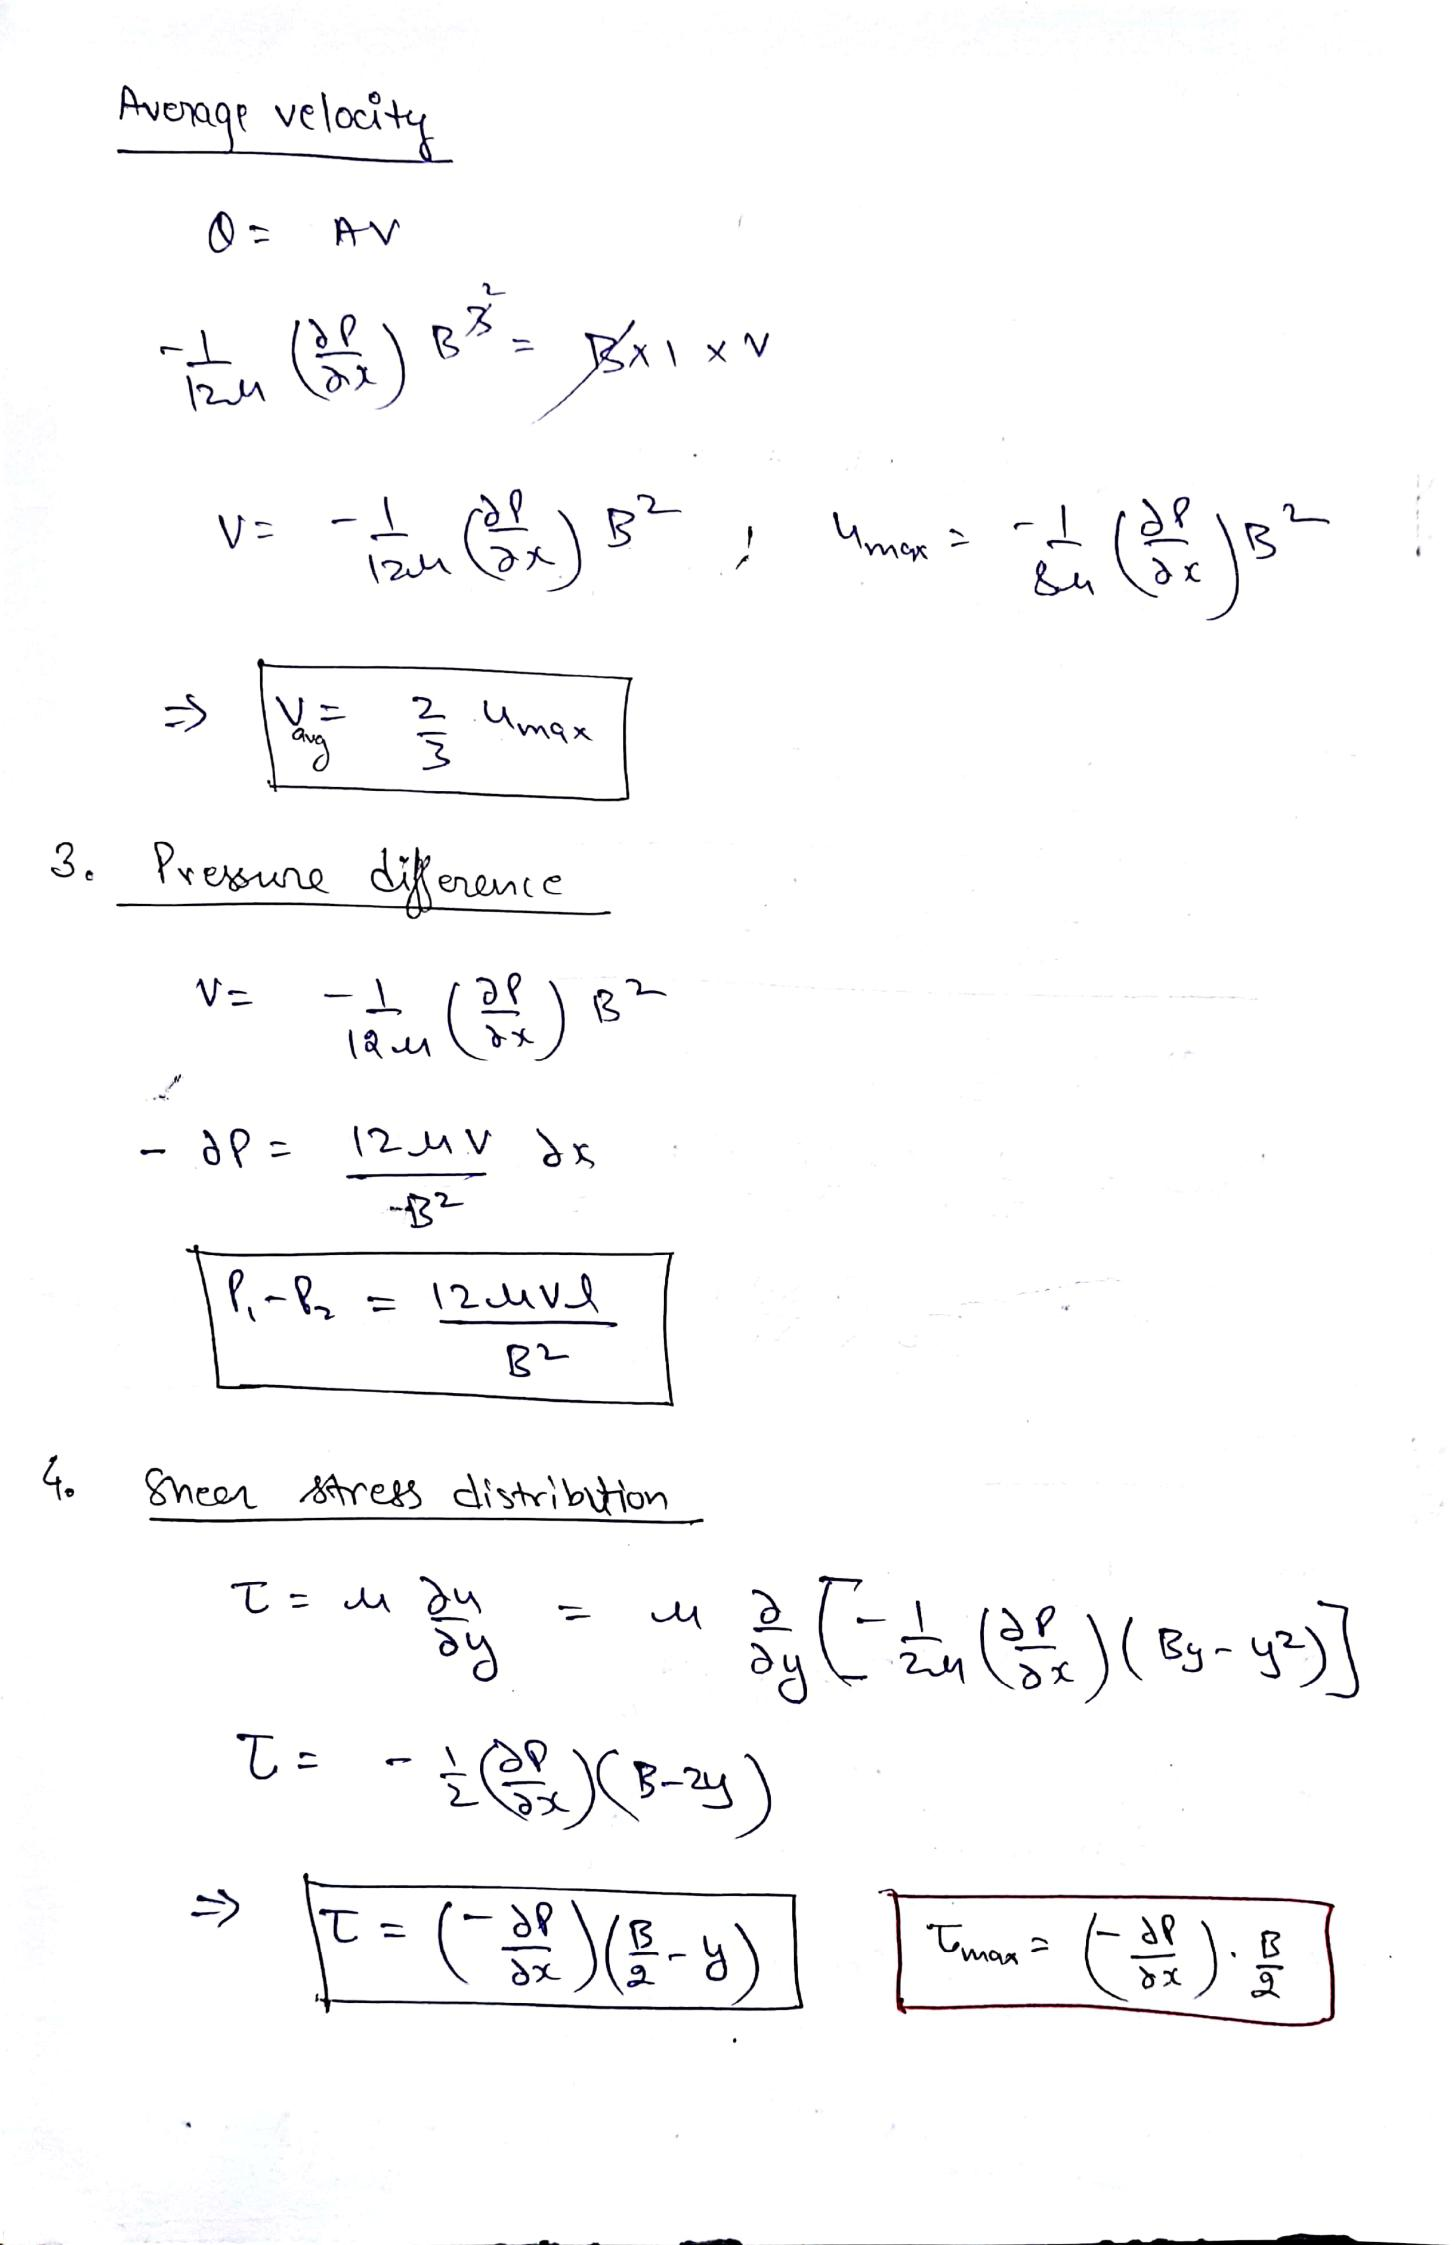 Average velocity
Q = AV
-1/12μ (∂P/∂x) B3̸^2 = B̸ x 1 x V
V = -1/12μ (∂P/∂x) B^2 ; Umax = -1/8μ (∂P/∂x) B^2
⇒ Vavg = 2/3 Umax
3. Pressure difference
V = -1/12μ (∂P/∂x) B^2
- ∂P = 12μV/-B^2 ∂x
P1-P2 = 12μVl/B^2
4. Sheer stress distribution
τ = μ ∂u/∂y = μ ∂/∂y [-1/2μ (∂P/∂x)(By-y^2)]
τ = -1/2 (∂P/∂x)(B-2y)
⇒ τ = (-∂P/∂x)(B/2-y) τmax = (-∂P/∂x).B/2